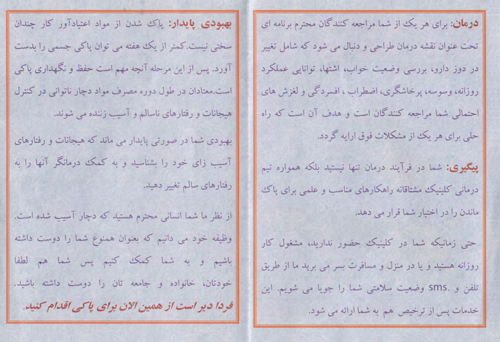 درمان: برای هر یک از شما مراجعه کنندگان محترم برنامه ای
تحت عنوان نقشه درمان طراحی و دنبال می شود که شامل تغییر
در دوز دارو، بررسی وضعیت خواب، اشتها، توانایی عملکرد
روزانه، وسوسه، پرخاشگری، اضطراب ، افسردگی و لغزش های
احتمالی شما مراجعه کنندگان است و هدف آن است که راه
حلی برای هر یک از مشکلات فوق ارایه گردد.
پیگیری: شما در فرآیند درمان تنها نیستید بلکه همواره تیم
درمانی کلینیک مشتاقانه راهکارهای مناسب و علمی برای پاک
ماندن را در اختیار شما قرار می دهد.
حتی زمانیکه شما در کلینیک حضور ندارید، مشغول کار
روزانه هستید و یا در منزل و مسافرت بسر می برید ما از طریق
تلفن و .sms وضعیت سلامتی شما را جویا می شویم. این
خدمات پس از ترخیص هم به شما ارائه می شود.
بهبودی پایدار: پاک شدن از مواد اعتیادآور کار چندان
سختی نیست.کمتر از یک هفته می توان پاکی جسمی را بدست
آورد. پس از این مرحله آنچه مهم است حفظ و نگهداری پاکی
است.معتادان در طول دوره مصرف مواد دچار ناتوانی در کنترل
هیجانات و رفتارهای ناسالم و آسیب زننده می شوند.
بهبودی شما در صورتی پایدار می ماند که هیجانات و رفتارهای
آسیب زای خود را بشناسید و به کمک درمانگر آنها را به
رفتارهای سالم تغییر دهید.
از نظر ما شما انسانی محترم هستید که دچار آسیب شده است.
وظیفه خود می دانیم که بعنوان همنوع شما را دوست داشته
باشیم و به شما کمک کنیم پس شما هم لطفا
خودتان، خانواده و جامعه تان را دوست داشته باشید.
فردا دیر است از همین الان برای پاکی اقدام کنید.